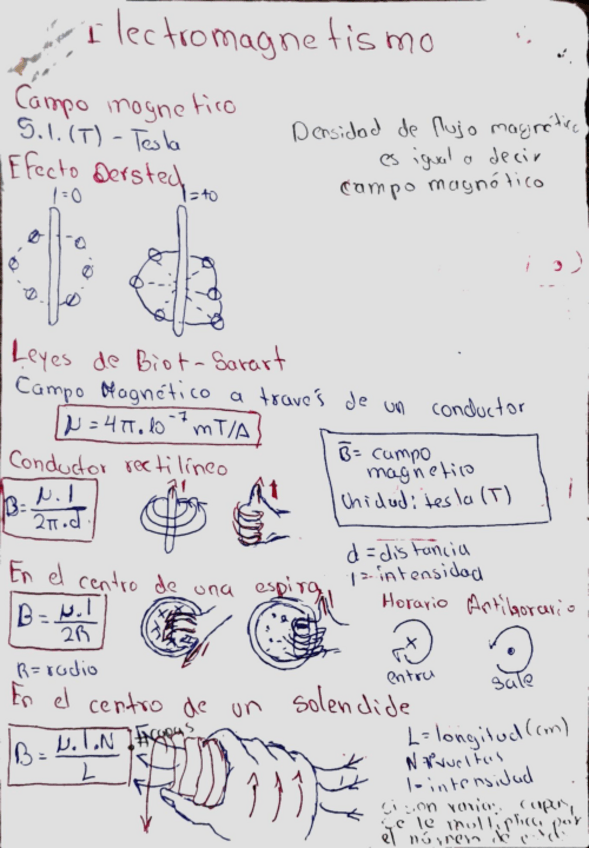 Electromagnetismo
Campo magnetico
S.I. (T) - Tesla
Densidad de flujo magnético
es igual a decir
campo magnético
Efecto Oersted
I=0
I=≠0
Leyes de Biot-Sarart
Campo Magnético a través de un conductor
μ = 4π.10⁻⁷ mT/A
B̄= campo
magnetico
Unidad: tesla (T)
Conductor rectilíneo
B= μ.I / 2π.d
I
I
d = distancia
I = intensidad
En el centro de una espira
B = μ.I / 2R
I
Horario Antihorario
entra
sale
R= radio
En el centro de un solendide
B = μ.I.N / L
L= longitud (cm)
N= vueltas
I= intensidad
si son varias capas,
se le multiplica por
el número de